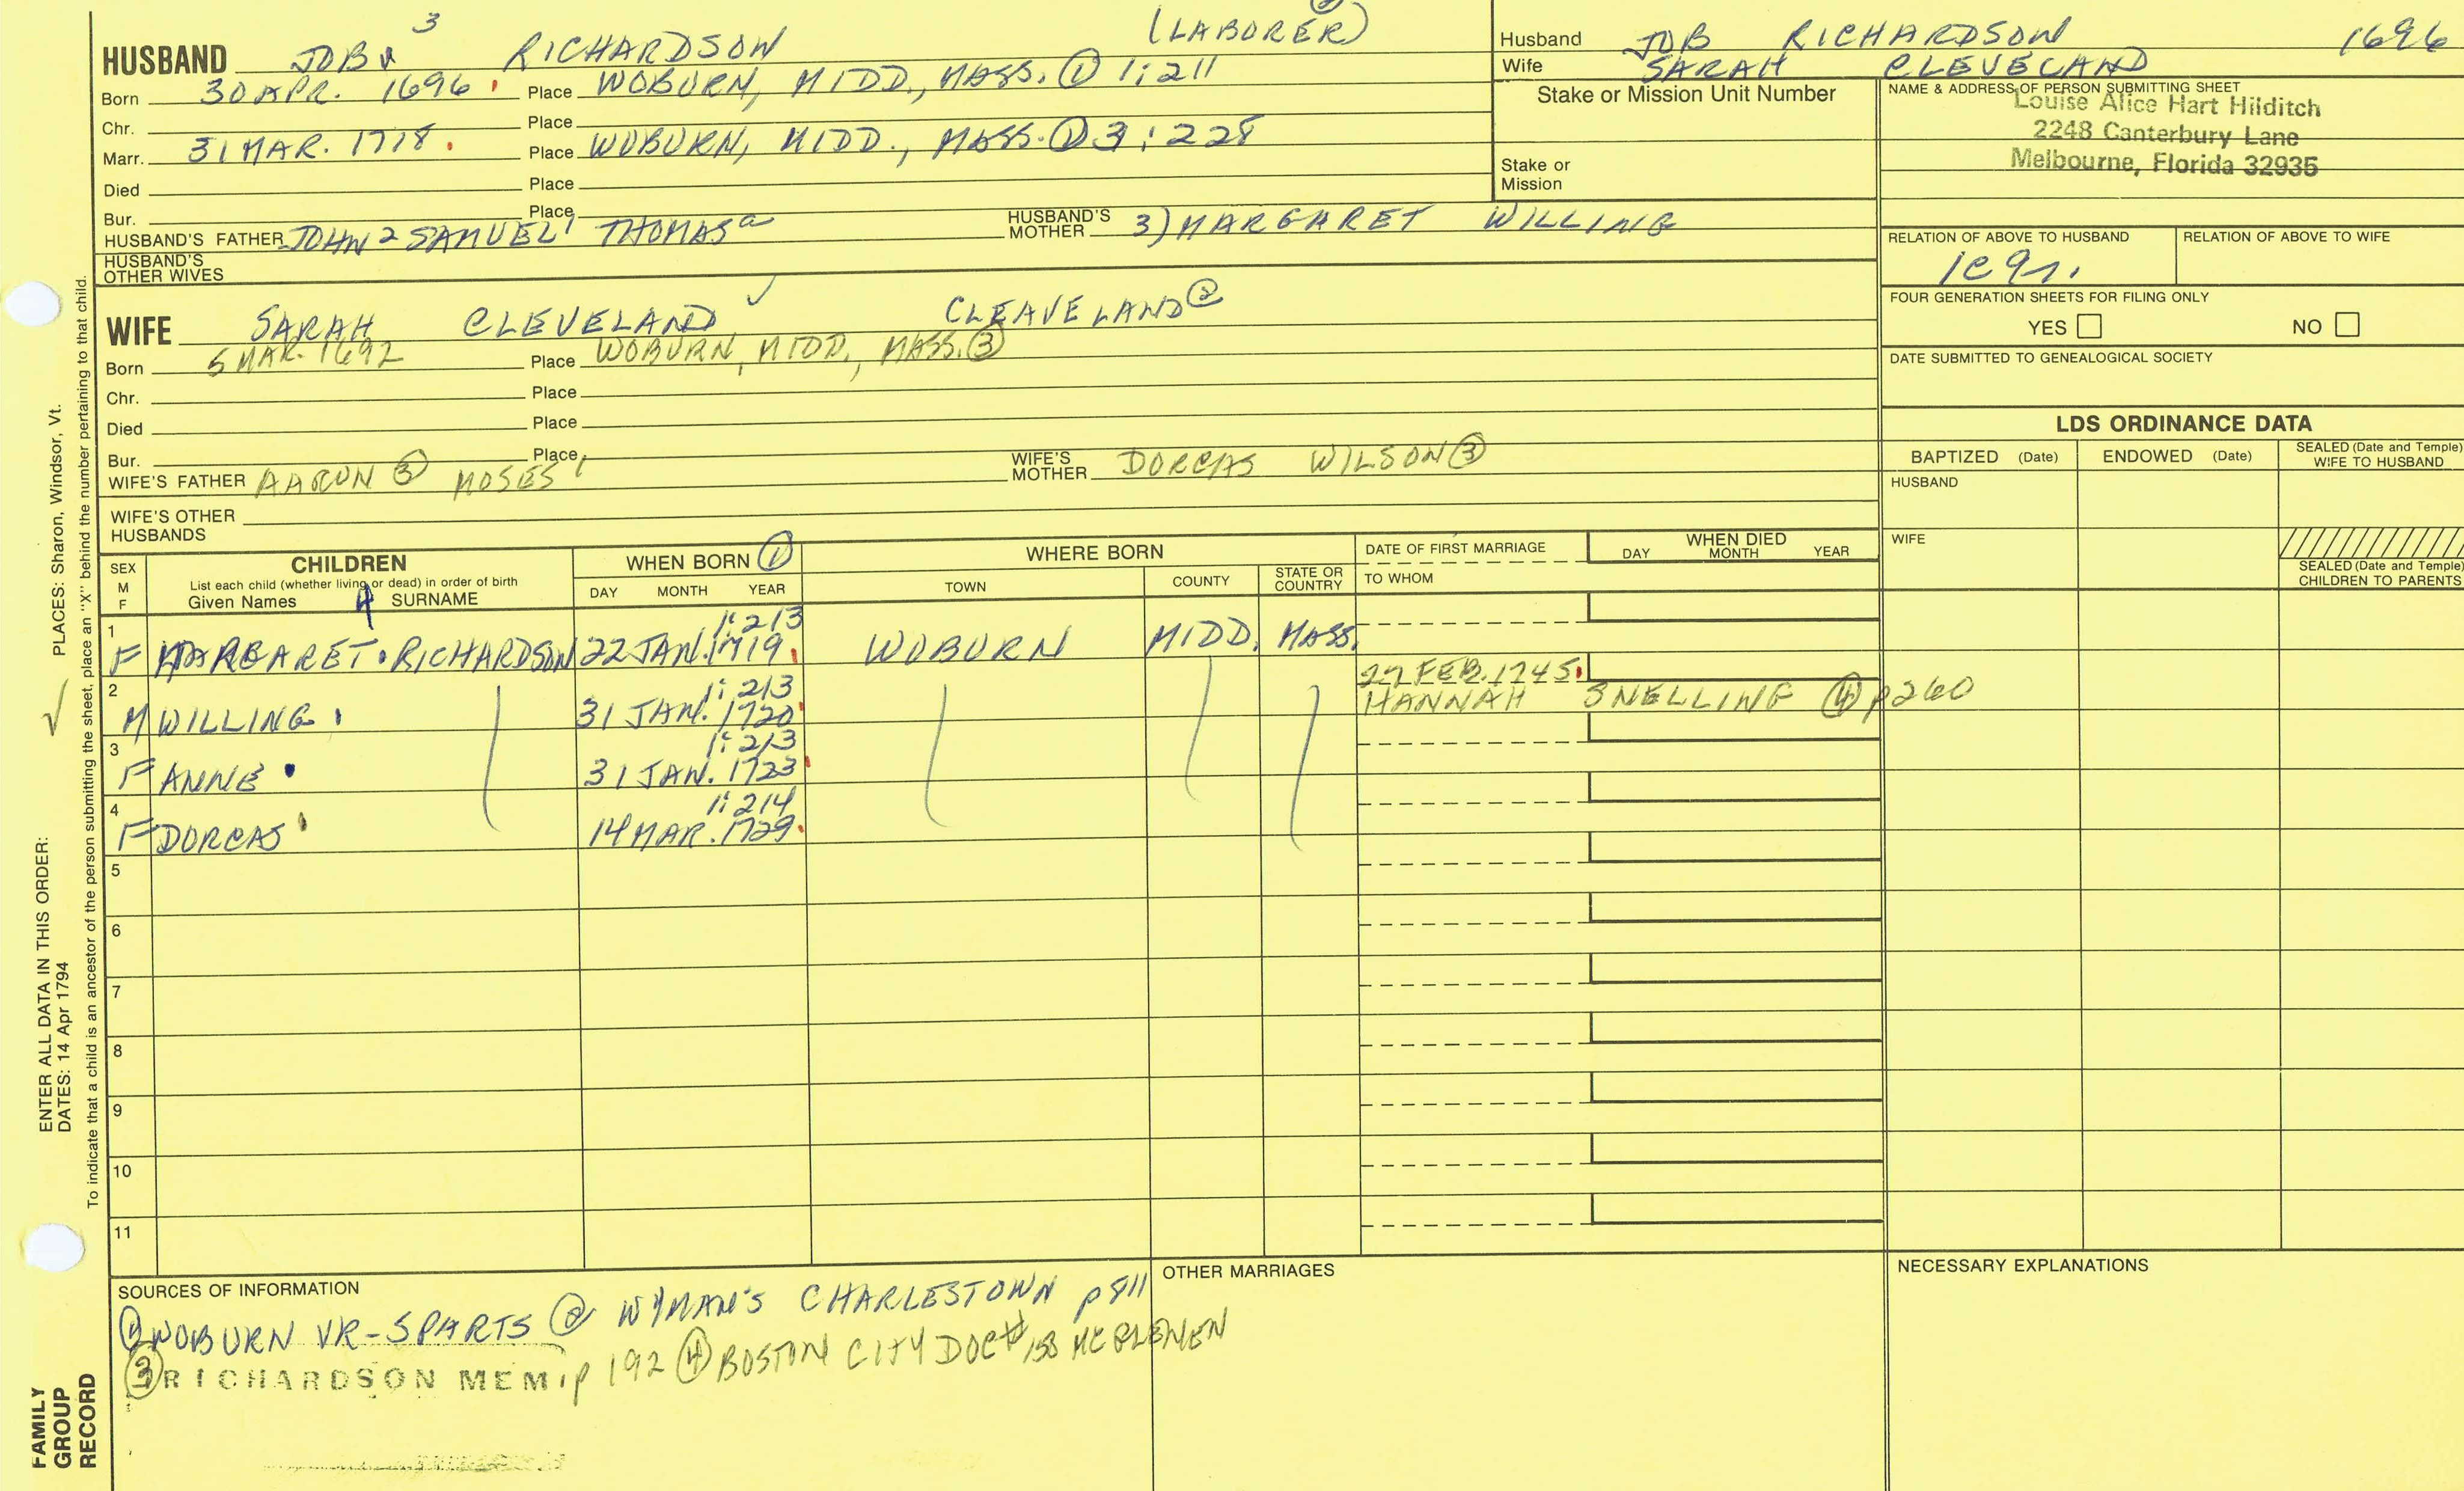 HUSBAND JOB 3 RICHARDSON (LABORER)
Born 30 APR. 1696 Place WOBURN, MIDD., MASS. ① 1:211
Chr. Place
Marr. 31 MAR. 1718. Place WOBURN, MIDD., MASS. ① 3:228
Died Place
Bur. Place
HUSBAND'S FATHER JOHN 2 SAMUEL 1 THOMAS a HUSBAND'S MOTHER 3) MARGARET WILLING
HUSBAND'S OTHER WIVES
WIFE SARAH CLEVELAND ✓ CLEAVELAND ②
Born 5 MAR. 1692 Place WOBURN, MIDD., MASS. ③
Chr. Place
Died Place
Bur. Place
WIFE'S FATHER AARON ③ MOSES 1 WIFE'S MOTHER DORCAS WILSON ③
WIFE'S OTHER HUSBANDS
Husband JOB RICHARDSON 1696
Wife SARAH CLEVELAND
Stake or Mission Unit Number
Stake or Mission
NAME & ADDRESS OF PERSON SUBMITTING SHEET
Louise Alice Hart Hilditch
2248 Canterbury Lane
Melbourne, Florida 32935
RELATION OF ABOVE TO HUSBAND RELATION OF ABOVE TO WIFE
FOUR GENERATION SHEETS FOR FILING ONLY
YES NO
DATE SUBMITTED TO GENEALOGICAL SOCIETY
LDS ORDINANCE DATA
BAPTIZED (Date) ENDOWED (Date) SEALED (Date and Temple) WIFE TO HUSBAND
HUSBAND
WIFE
SEALED (Date and Temple) CHILDREN TO PARENTS
SEX M F
CHILDREN
List each child (whether living or dead) in order of birth
Given Names 4 SURNAME
WHEN BORN ①
DAY MONTH YEAR
WHERE BORN
TOWN COUNTY STATE OR COUNTRY
DATE OF FIRST MARRIAGE
TO WHOM
WHEN DIED
DAY MONTH YEAR
1 1:213
F MARGARET RICHARDSON 22 JAN. 1719. WOBURN MIDD. MASS.
2 1:213 27 FEB. 1745.
M WILLING 31 JAN. 1720 HANNAH SNELLING ④ p260
3 1:213
F ANNE 31 JAN. 1723
4 1:214
F DORCAS 14 MAR. 1729
5
6
7
8
9
10
11
SOURCES OF INFORMATION
① WOBURN VR-5PARTS ② WYMAN'S CHARLESTOWN p811
③ RICHARDSON MEM, p 192 ④ BOSTON CITY DOC #150
OTHER MARRIAGES
NECESSARY EXPLANATIONS
PLACES: Sharon, Windsor, Vt.
ENTER ALL DATA IN THIS ORDER:
DATES: 14 Apr 1794
To indicate that a child is an ancestor of the person submitting the sheet, place an "X" behind the number pertaining to that child.
FAMILY GROUP RECORD